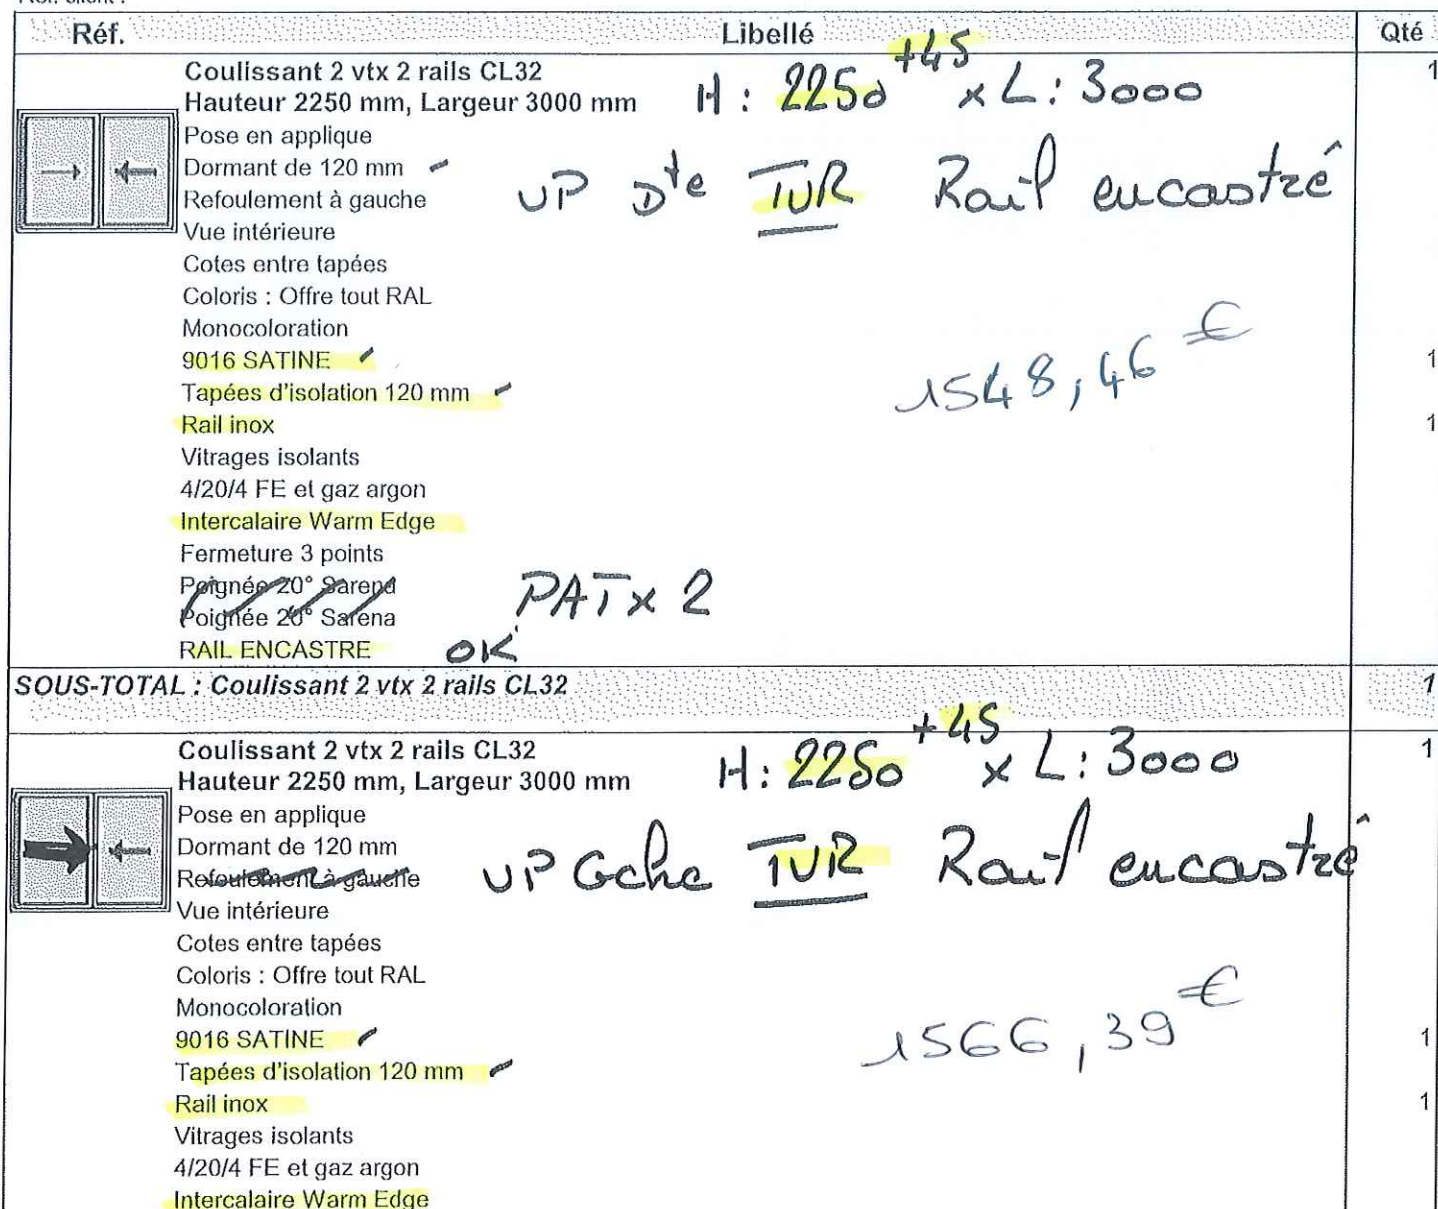 Réf. Libellé Qté
Coulissant 2 vtx 2 rails CL32 1
Hauteur 2250 mm, Largeur 3000 mm H : 2250 +45 x L : 3000
Pose en applique
Dormant de 120 mm
Refoulement à gauche VP Dte TUR Rail encastré
Vue intérieure
Cotes entre tapées
Coloris : Offre tout RAL
Monocoloration
9016 SATINE 1
1548,46 €
Tapées d'isolation 120 mm
Rail inox 1
Vitrages isolants
4/20/4 FE et gaz argon
Intercalaire Warm Edge
Fermeture 3 points
Poignée 20° Sarena
Poignée 20° Sarena PAT x 2
RAIL ENCASTRE OK
SOUS-TOTAL : Coulissant 2 vtx 2 rails CL32 1
Coulissant 2 vtx 2 rails CL32 1
Hauteur 2250 mm, Largeur 3000 mm H : 2250 +45 x L : 3000
Pose en applique
Dormant de 120 mm
Refoulement à gauche VP Gche TUR Rail encastré
Vue intérieure
Cotes entre tapées
Coloris : Offre tout RAL
Monocoloration
9016 SATINE 1
1566,39 €
Tapées d'isolation 120 mm
Rail inox 1
Vitrages isolants
4/20/4 FE et gaz argon
Intercalaire Warm Edge